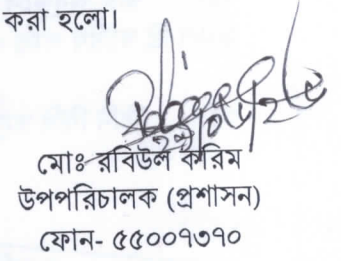 করা হলো।
মোঃ রবিউল করিম
উপপরিচালক (প্রশাসন)
ফোন- ৫৫০০৭৩৭০